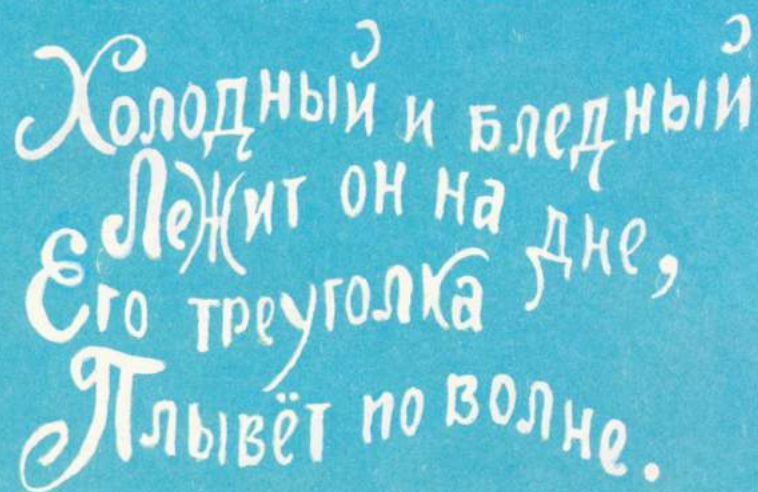 Холодный и бледный
Лежит он на дне,
Его треуголка
Плывёт по волне.